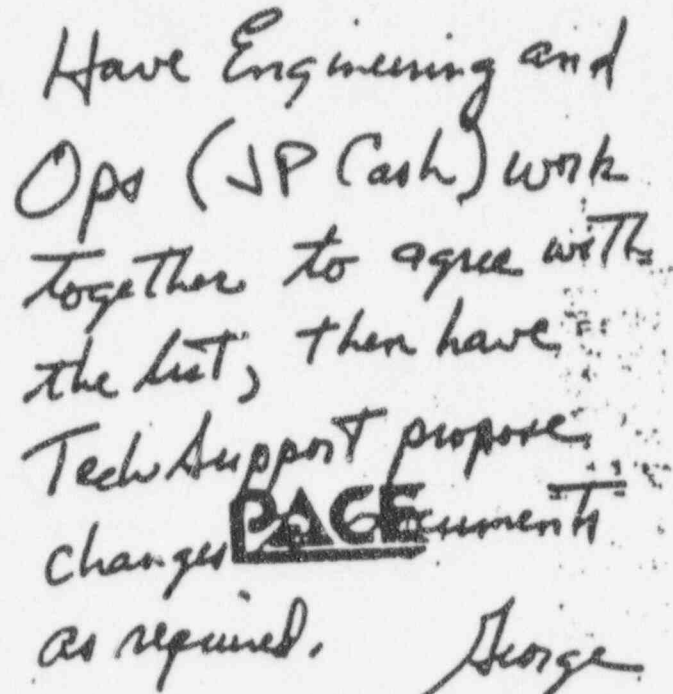 Have Engineering and
Ops (JP Cash) work
together to agree with
the list, then have
Tech Support propose
changes PAGE documents
as required. George